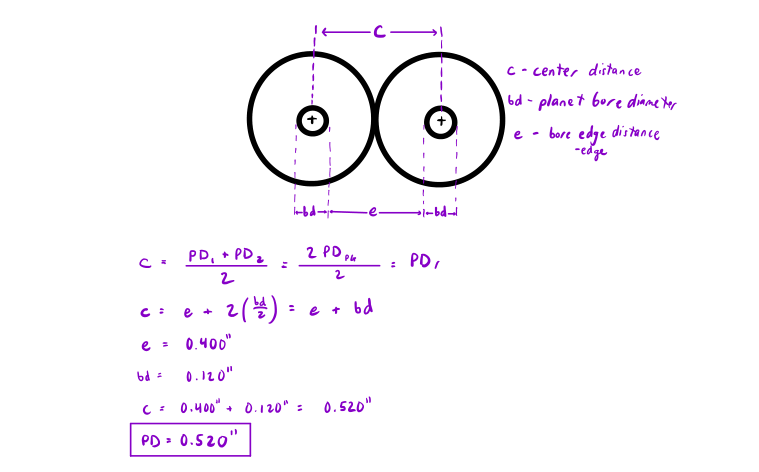 c
+ +
c - center distance
bd - planet bore diameter
e - bore edge distance
-edge
bd e bd
C = PD₁ + PD₂ / 2 = 2 PD_PG / 2 = PD₁
c = e + 2(bd/2) = e + bd
e = 0.400"
bd = 0.120"
C = 0.400" + 0.120" = 0.520"
PD = 0.520"